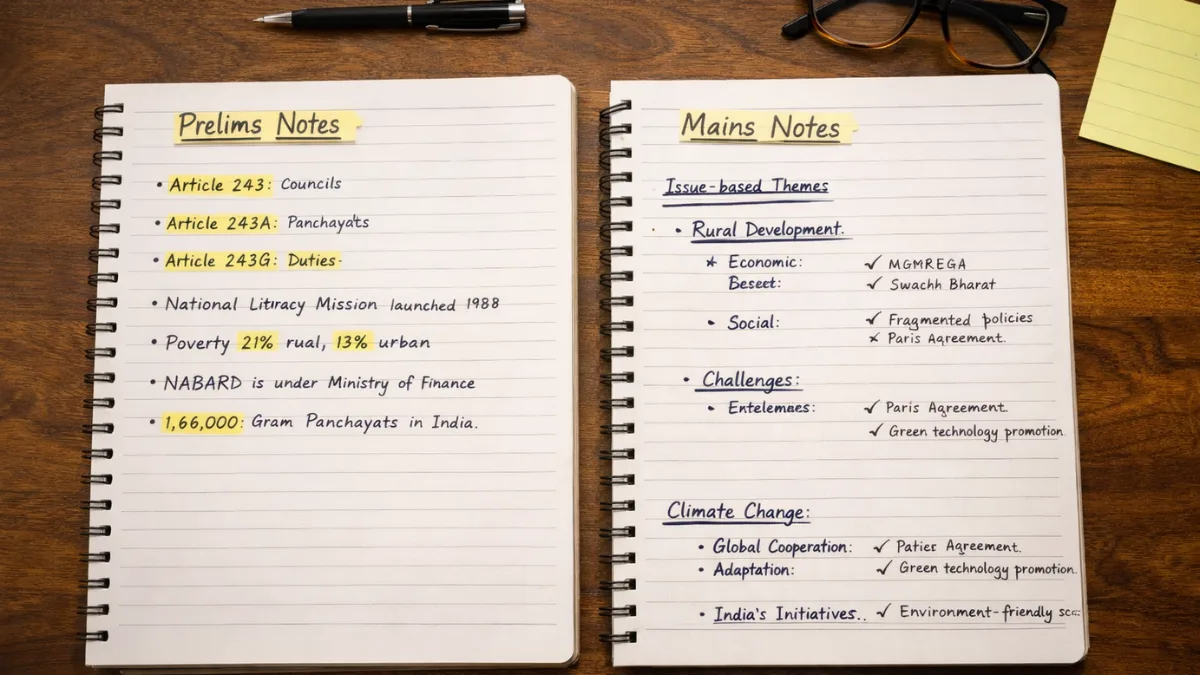 Prelims Notes
• Article 243: Councils
• Article 243A: Panchayats
• Article 243G: Duties-
• National Litıracy Mission launched 1988
• Poverty 21% rual, 13% urban
• NABARD is under Ministry of Finance
• 1,66,000: Gram Panchayats in India.
Mains Notes
Issue-based Themes
• Rural Development.
* Economic: ✓ MGMREGA
Beseet: ✓ Swachh Bharat
• Social: ✓ Fragmented policies
× Paris Agreement.
• Challenges:
• Entelemaes: ✓ Paris Agreement.
✓ Green technology promotion
Climate Change:
• Global Cooperation: ✓ Patier Agreement.
• Adaptation: ✓ Green technology promotion.
• India's Initiatives.. ✓ Environment-friendly